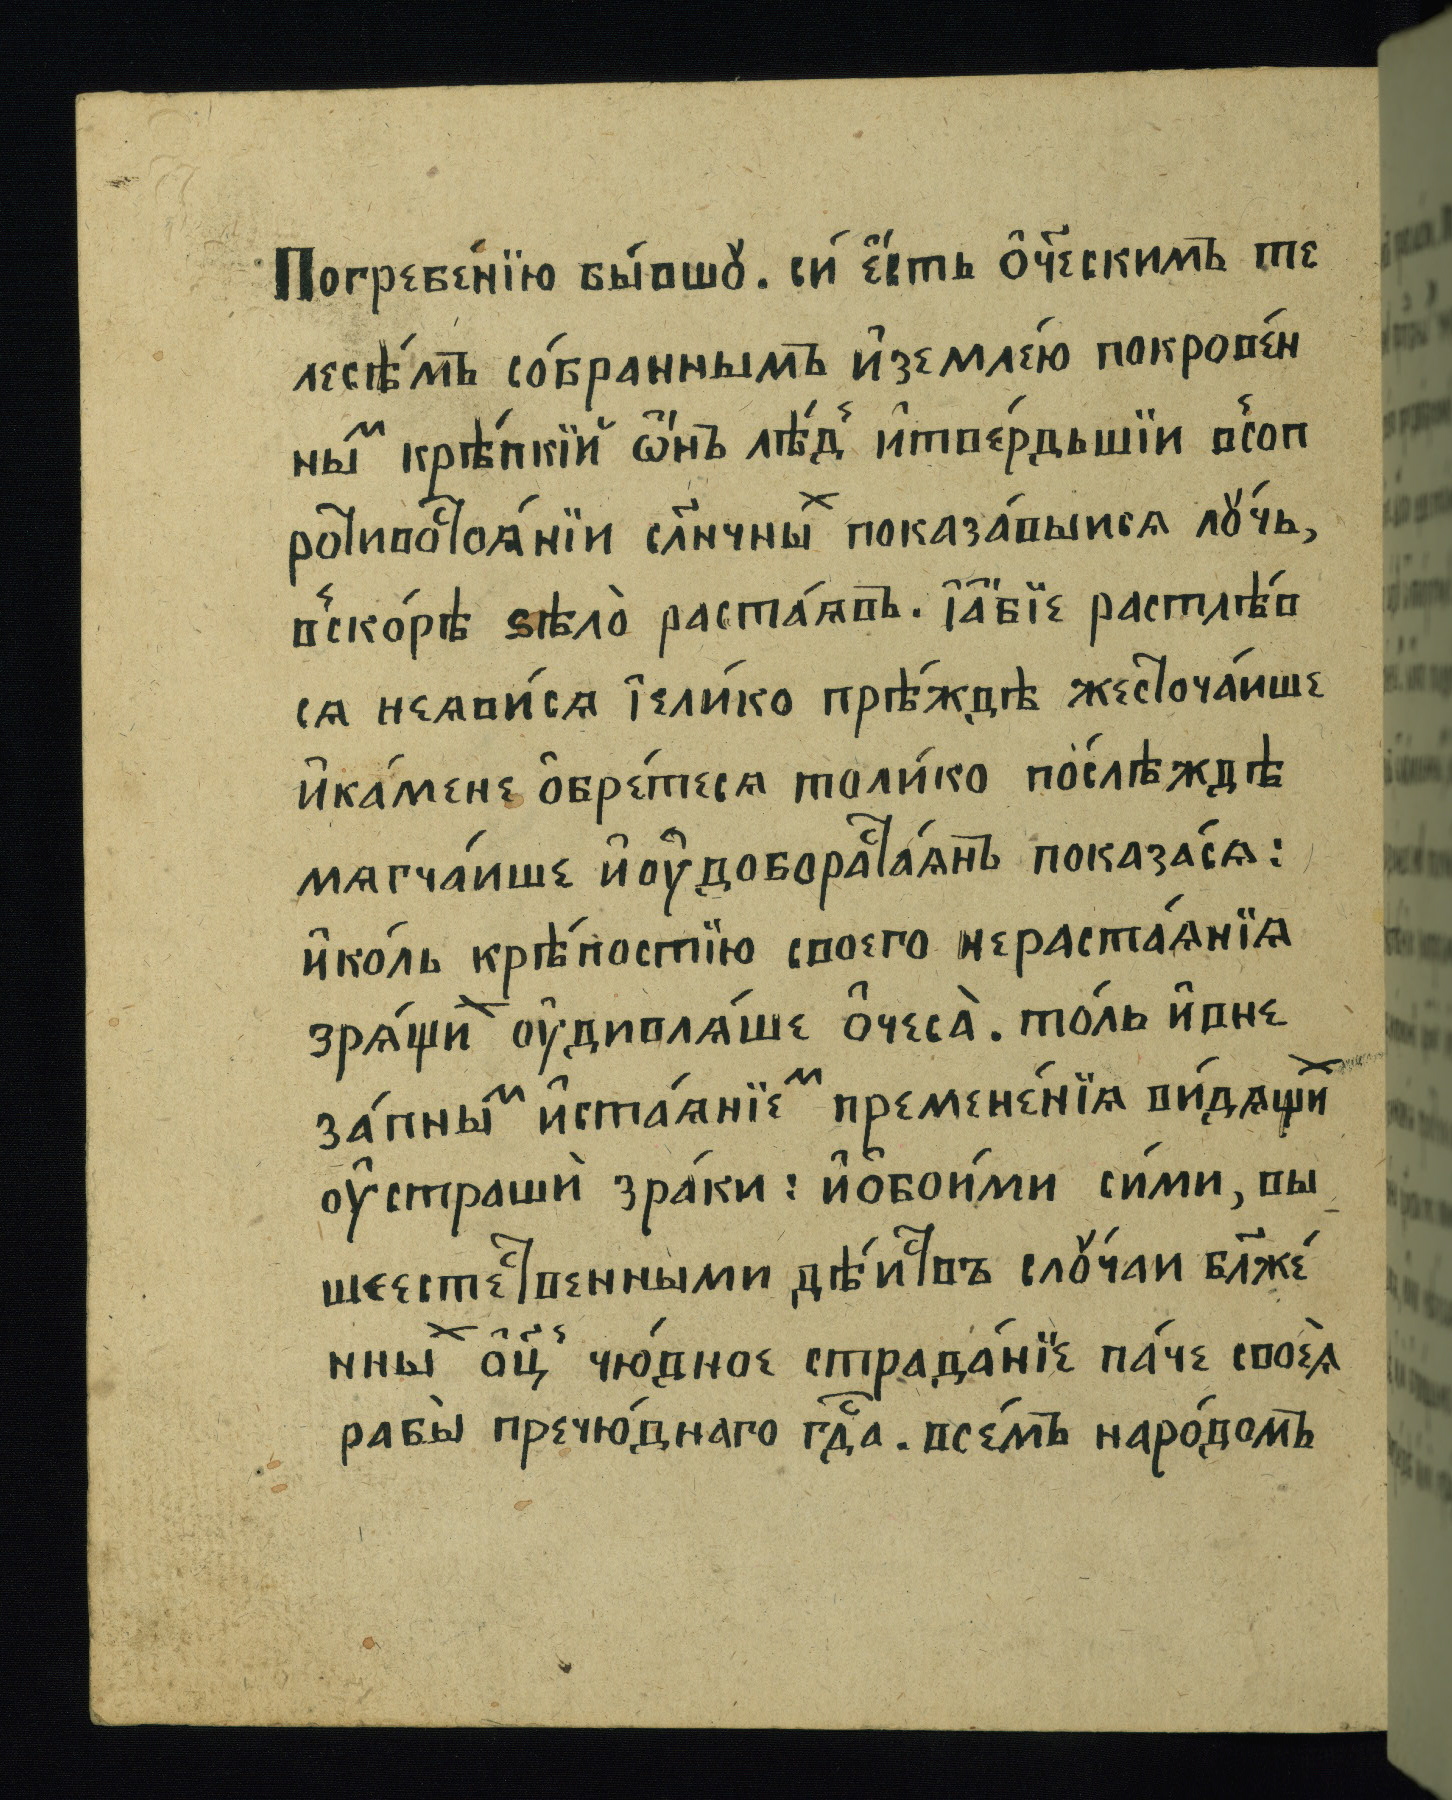 Погребе́нїю бы́вшꙋ. си́ є҆́сть ѻ҆ч҃ескимъ те
лесѣ́мъ со́бранымъ и҆землею покрове́н
ны́ⷨ крѣ́пкїй ѡ҆́нъ лѣ́дⸯ и҆тве́рдьшїи вⸯсоп
роти́воⷭ҇тоѧ́нїи сл҃нчныⷯ показа́выисѧ лꙋ́чь,
вⸯско́рѣ ѕѣлѡ̀ раста́ѧвъ. і҆а҆́бїе растлѣ́в
сѧ неѧви́сѧ і҆ели́ко прѣ́ждѣ жесточа́ише
и҆ка́мене ѻ҆бре́тесѧ толи́ко по́слѣждѣ
мѧгча́ише и҆оу҆добораⷭ҇та́ѧнъ показа́сѧ:
и҆ко́ль крѣ́постїю своего нераста́ѧнїѧ
зрѧ́щиⷯ оу҆дивлѧ́ше ѻ҆чеса̀. то́ль и҆вне
за́пныⷨ и҆ста́ѧнїеⷨ премене́нїѧ ви́дѧщиⷯ
оу҆страшѝ зра́ки: и҆ѻ҆бои́ми си́ми, вы
шеестеⷭ҇твенными дѣ́иⷭ҇твъ слꙋ́чаи бл҃же́
нныⷯ ѻ҆ц҃ъ чю́дное страда́нїе па́че своеѧ̀
рабы̀ пречю́днаго гдⷭ҇а. всѣ́мъ наро́домъ